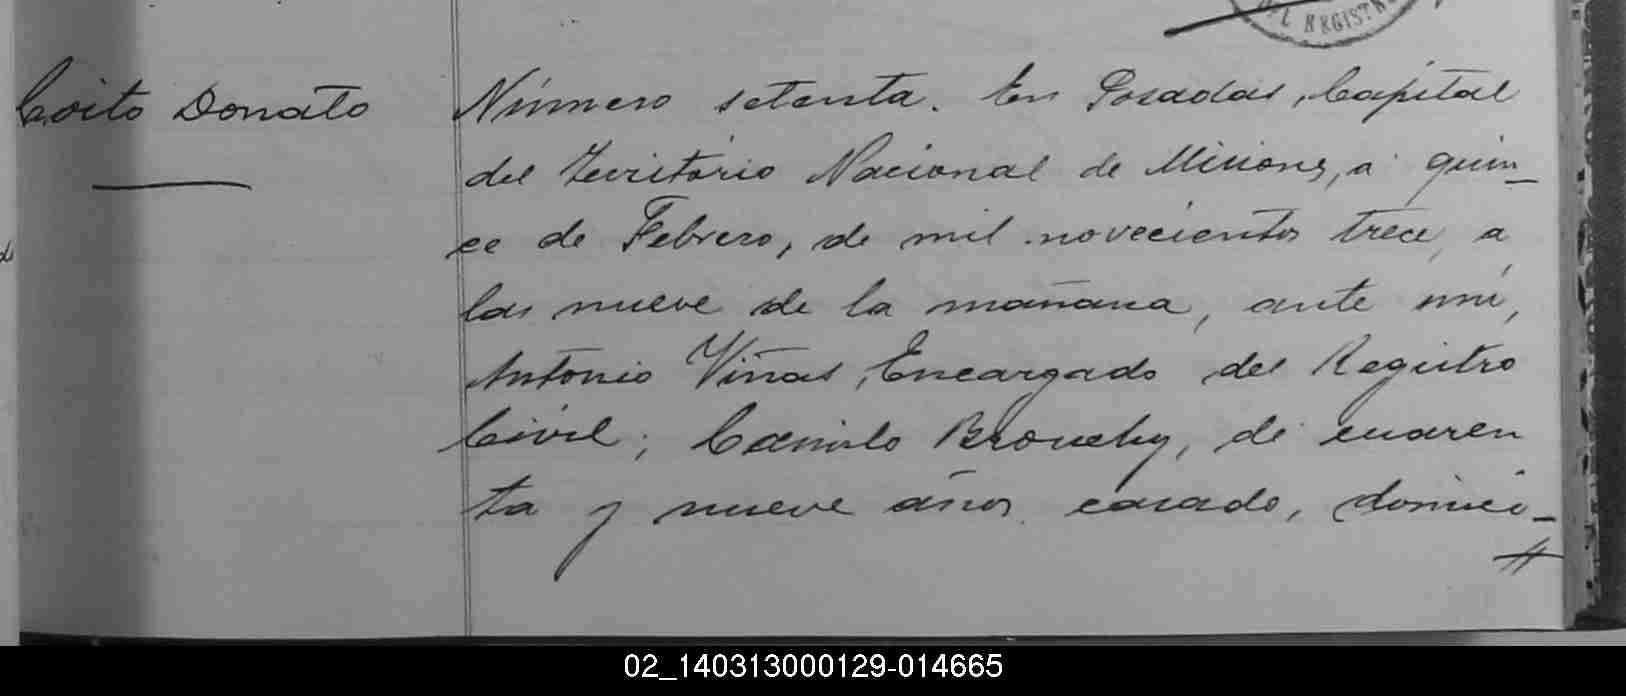 DEL REGISTRO
Coito Donato
Número setenta. En Posadas, Capital
del Territorio Nacional de Misiones, a quin_
ce de Febrero, de mil novecientos trece, a
las nueve de la mañana, ante mí,
Antonio Viñas, Encargado del Registro
Civil; Camilo Brouchy, de cuaren
ta y nueve años, casado, domici_
02_140313000129-014665